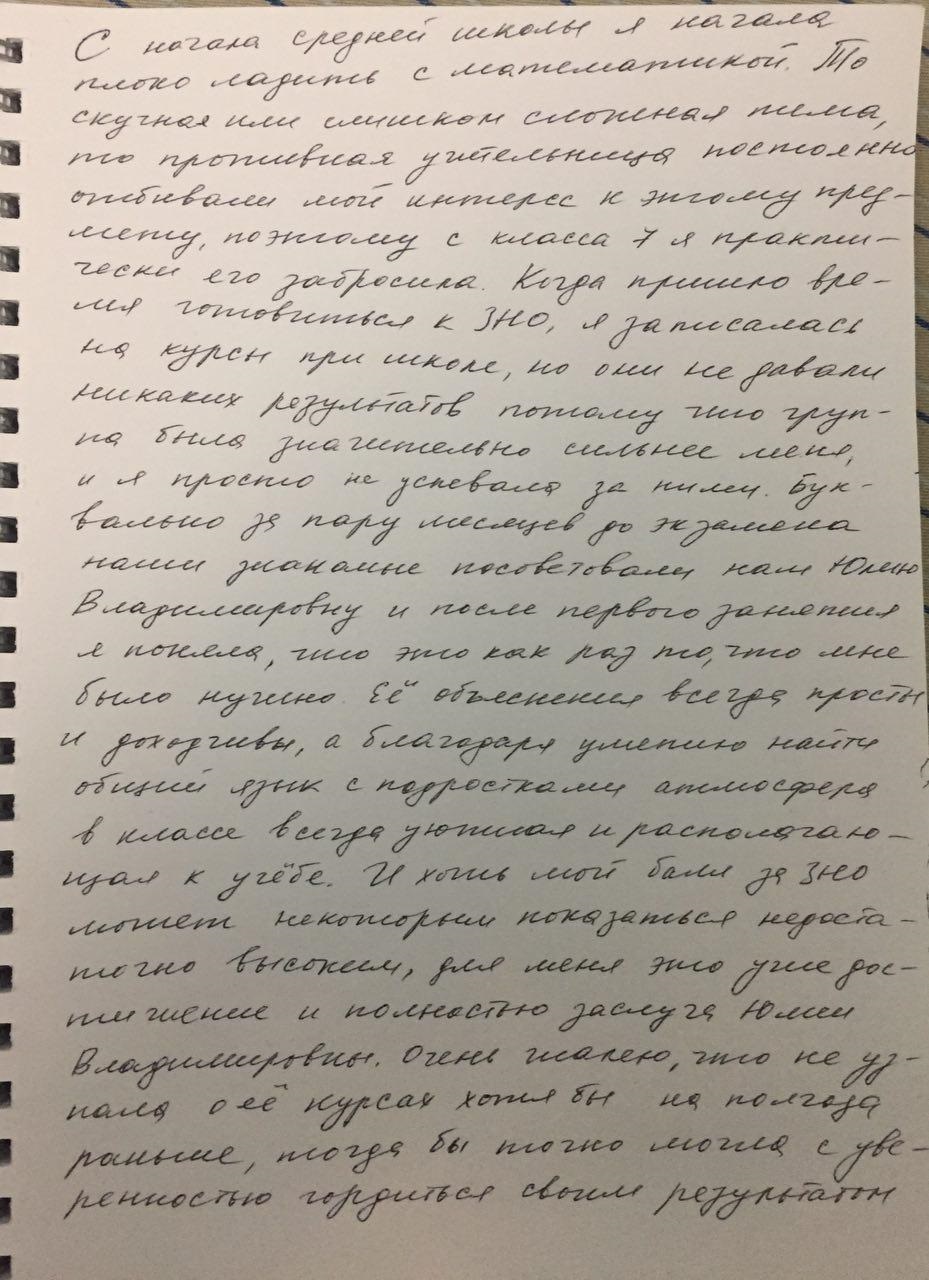 С начала средней школы я начала
плохо ладить с математикой. То
скучная или слишком сложная тема,
то противная учительница постоянно
отбивали мой интерес к этому пред-
мету, поэтому с класса 7 я практи-
чески его забросила. Когда пришло вре-
мя готовиться к ЗНО, я записалась
на курсы при школе, но они не давали
никаких результатов потому что груп-
па была значительно сильнее меня,
и я просто не успевала за ними. Бук-
вально за пару месяцев до экзамена
наши знакомые посоветовали нам Юлию
Владимировну и после первого занятия
я поняла, что это как раз то, что мне
было нужно. Её объяснения всегда просты
и доходчивы, а благодаря умению найти
общий язык с подростками атмосфера
в классе всегда уютная и располагаю-
щая к учёбе. И хоть мой балл за ЗНО
может некоторым показаться недоста-
точно высоким, для меня это уже дос-
тижение и полностью заслуга Юлии
Владимировны. Очень жалею, что не уз-
нала о её курсах хотя бы на полгода
раньше, тогда бы точно могла с уве-
ренностью гордиться своим результатом